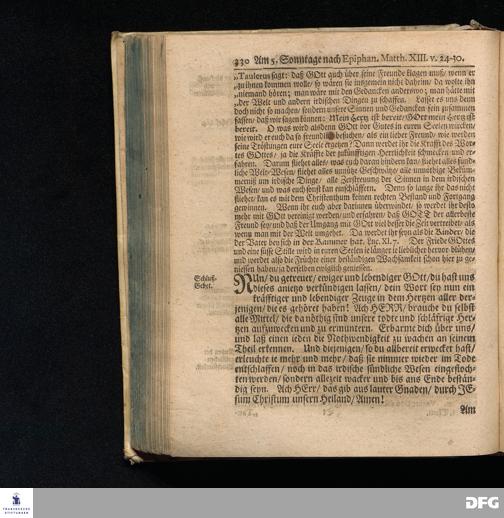 330 Am 5. Sonntage nach Epiphan. Matth. XIII. v. 24-30.
„Taulerus sagt: daß GOtt auch über seine Freunde klagen muß/ wenn er
„zu ihnen kommen wolle/ so wären sie insgemein nicht daheim/ da wolte ihn
„niemand hören; man wäre mit den Gedancken anderswo; man hätte mit
„der Welt und andern irdischen Dingen zu schaffen. Lasset es uns denn
doch nicht so machen/ sondern unsere Sinnen und Gedancken fein zusammen
fassen/ daß wir sagen können: Mein Hertz ist bereit/ GOtt mein Hertz ist
bereit. O was wird alsdenn GOtt vor Gutes in euren Seelen wircken/
wie wird er euch da so freundlich besuchen/ als ein lieber Freund/ wie werden
seine Tröstungen eure Seele ergetzen! Dann werdet ihr die Krafft des Wor-
tes GOttes/ ja die Kräffte der zukünfftigen Herrlichkeit schmecken und er-
fahren. Darum fliehet alles/ was euch daran hindern kan/ fliehet alles sünd-
liche Welt-Wesen/ fliehet alles unnütze Geschwätz/ alle unnöthige Beküm-
merniß um irdische Dinge/ alle Zerstreuung der Sinnen in dem irdischen
Wesen/ und was euch sonst kan einschläffern. Denn so lange ihr das nicht
fliehet/ kan es mit dem Christenthum keinen rechten Bestand und Fortgang
gewinnen. Wenn ihr euch aber darinnen überwindet/ so werdet ihr desto
mehr mit GOtt vereiniget werden/ und erfahren/ daß GOTT der allerbeste
Freund sey/ und daß der Umgang mit GOtt viel besser die Zeit vertreibet/ als
wenn man mit der Welt umgehet. Da werdet ihr seyn als die Kinder/ die
der Vater bey sich in der Kammer hat. Luc. XI. 7. Der Friede GOttes
und eine süsse Stille wird in euren Seelen ie länger ie lieblicher hervor blühen/
und werdet also die Früchte einer beständigen Wachsamkeit schon hier zu ge-
niessen haben/ ja derselben ewiglich geniessen.
Schluß-
Gebet.
NUn/ du getreuer/ ewiger und lebendiger GOtt/ du hast uns
dieses anietzo verkündigen lassen/ dein Wort sey nun ein
kräfftiger und lebendiger Zeuge in dem Hertzen aller der-
jenigen/ die es gehöret haben! Ach HERR/ brauche du selbst
alle Mittel/ die da nöthig sind unsere todte und schläfrige Her-
tzen aufzuwecken und zu ermuntern. Erbarme dich über uns/
und laß einen ieden die Nothwendigkeit zu wachen an seinem
Theil erkennen. Und diejenigen/ so du allbereit erwecket hast/
erleuchte ie mehr und mehr/ daß sie nimmer wieder im Tode
entschlaffen/ noch in das irdische sündliche Wesen eingefloch-
ten werden/ sondern allezeit wacker und bis ans Ende bestän-
dig seyn. Ach HErr/ das gib aus lauter Gnaden/ durch JE-
sum Christum unsern Heiland/ Amen!
Am
FRANCKESCHE
STIFTUNGEN
DFG